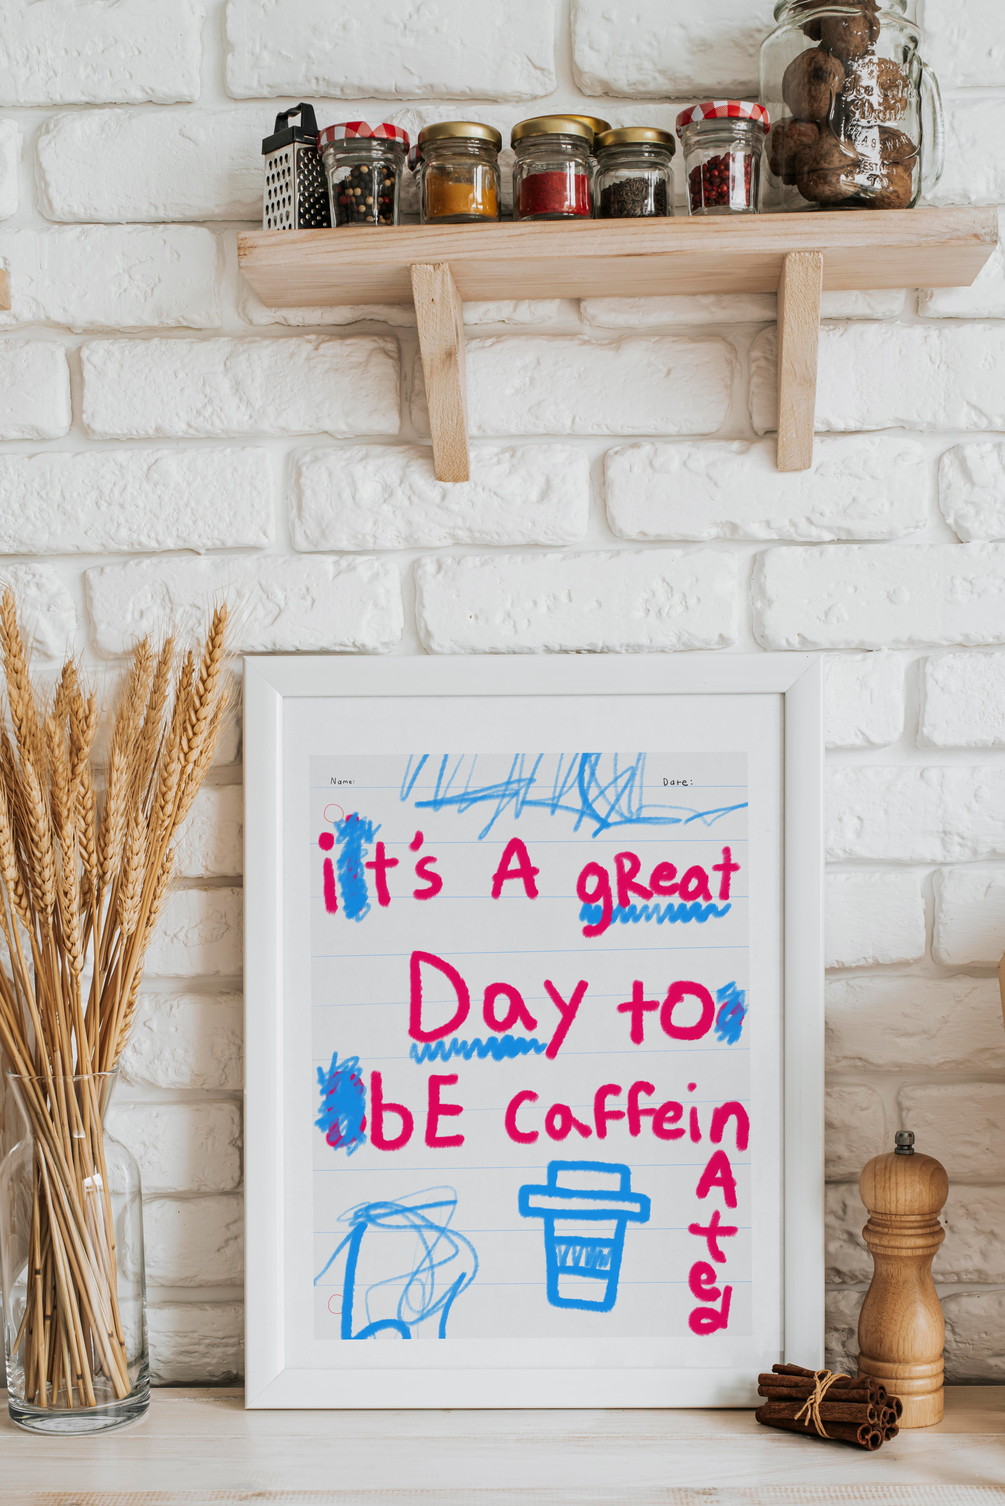 Name:
Date:
it's A gReat
Day to
bE caffein
Ated